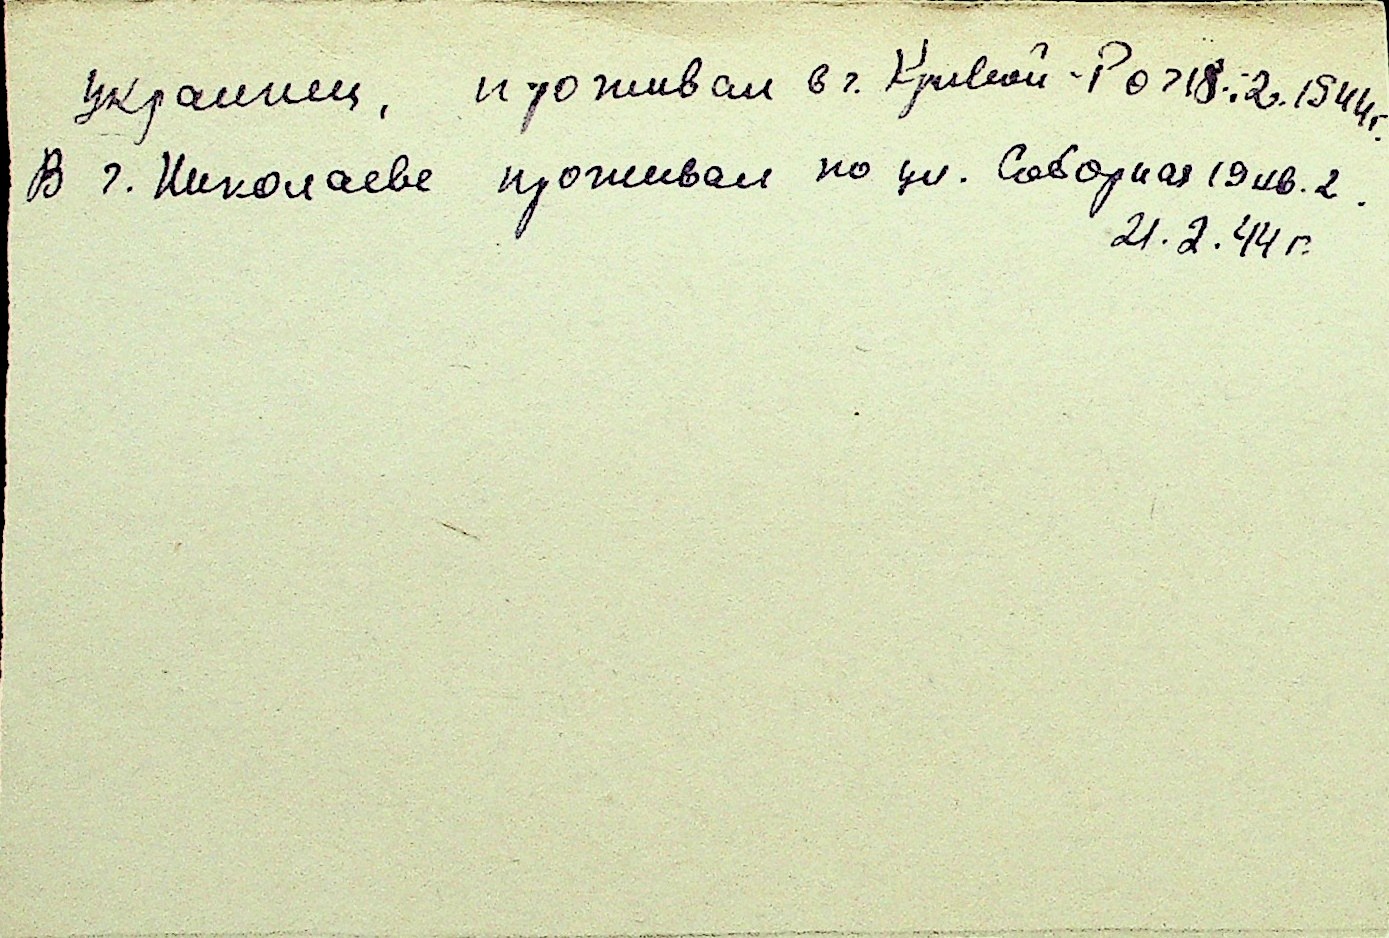 украинец, проживал в г. Кривой-Рог 18.2.1944г.
В г. Николаеве проживал по ул. Соборная 19 кв. 2.
21.2.44 г.